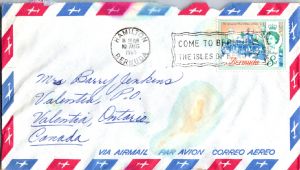 HAMILTON
BERMUDA
COME TO BE
THE ISLES OF
Bermuda
Mrs Barry Jenkins
Valentia P.O.
Valentia, Ontario
Canada
VIA AIRMAIL PAR AVION CORREO AEREO